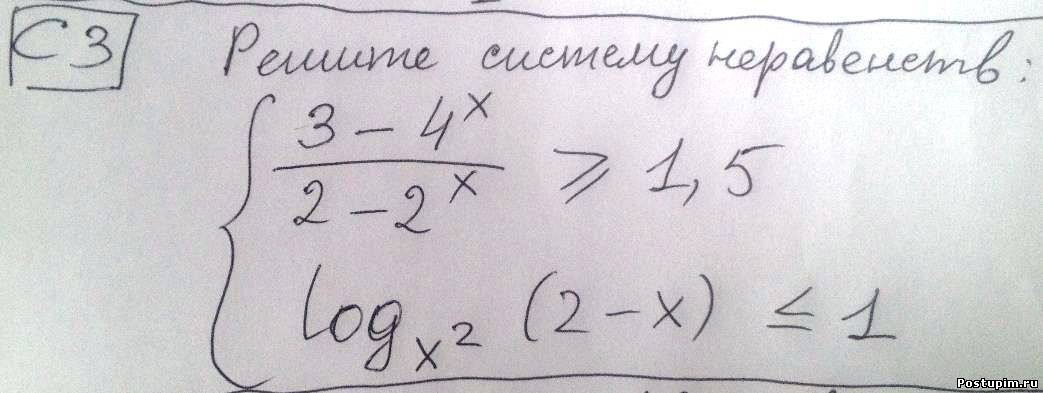 С3 Решите систему неравенств:
3 − 4^x
2 − 2^x ⩾ 1,5
log_{x^2} (2 − x) ≤ 1
Postupim.ru